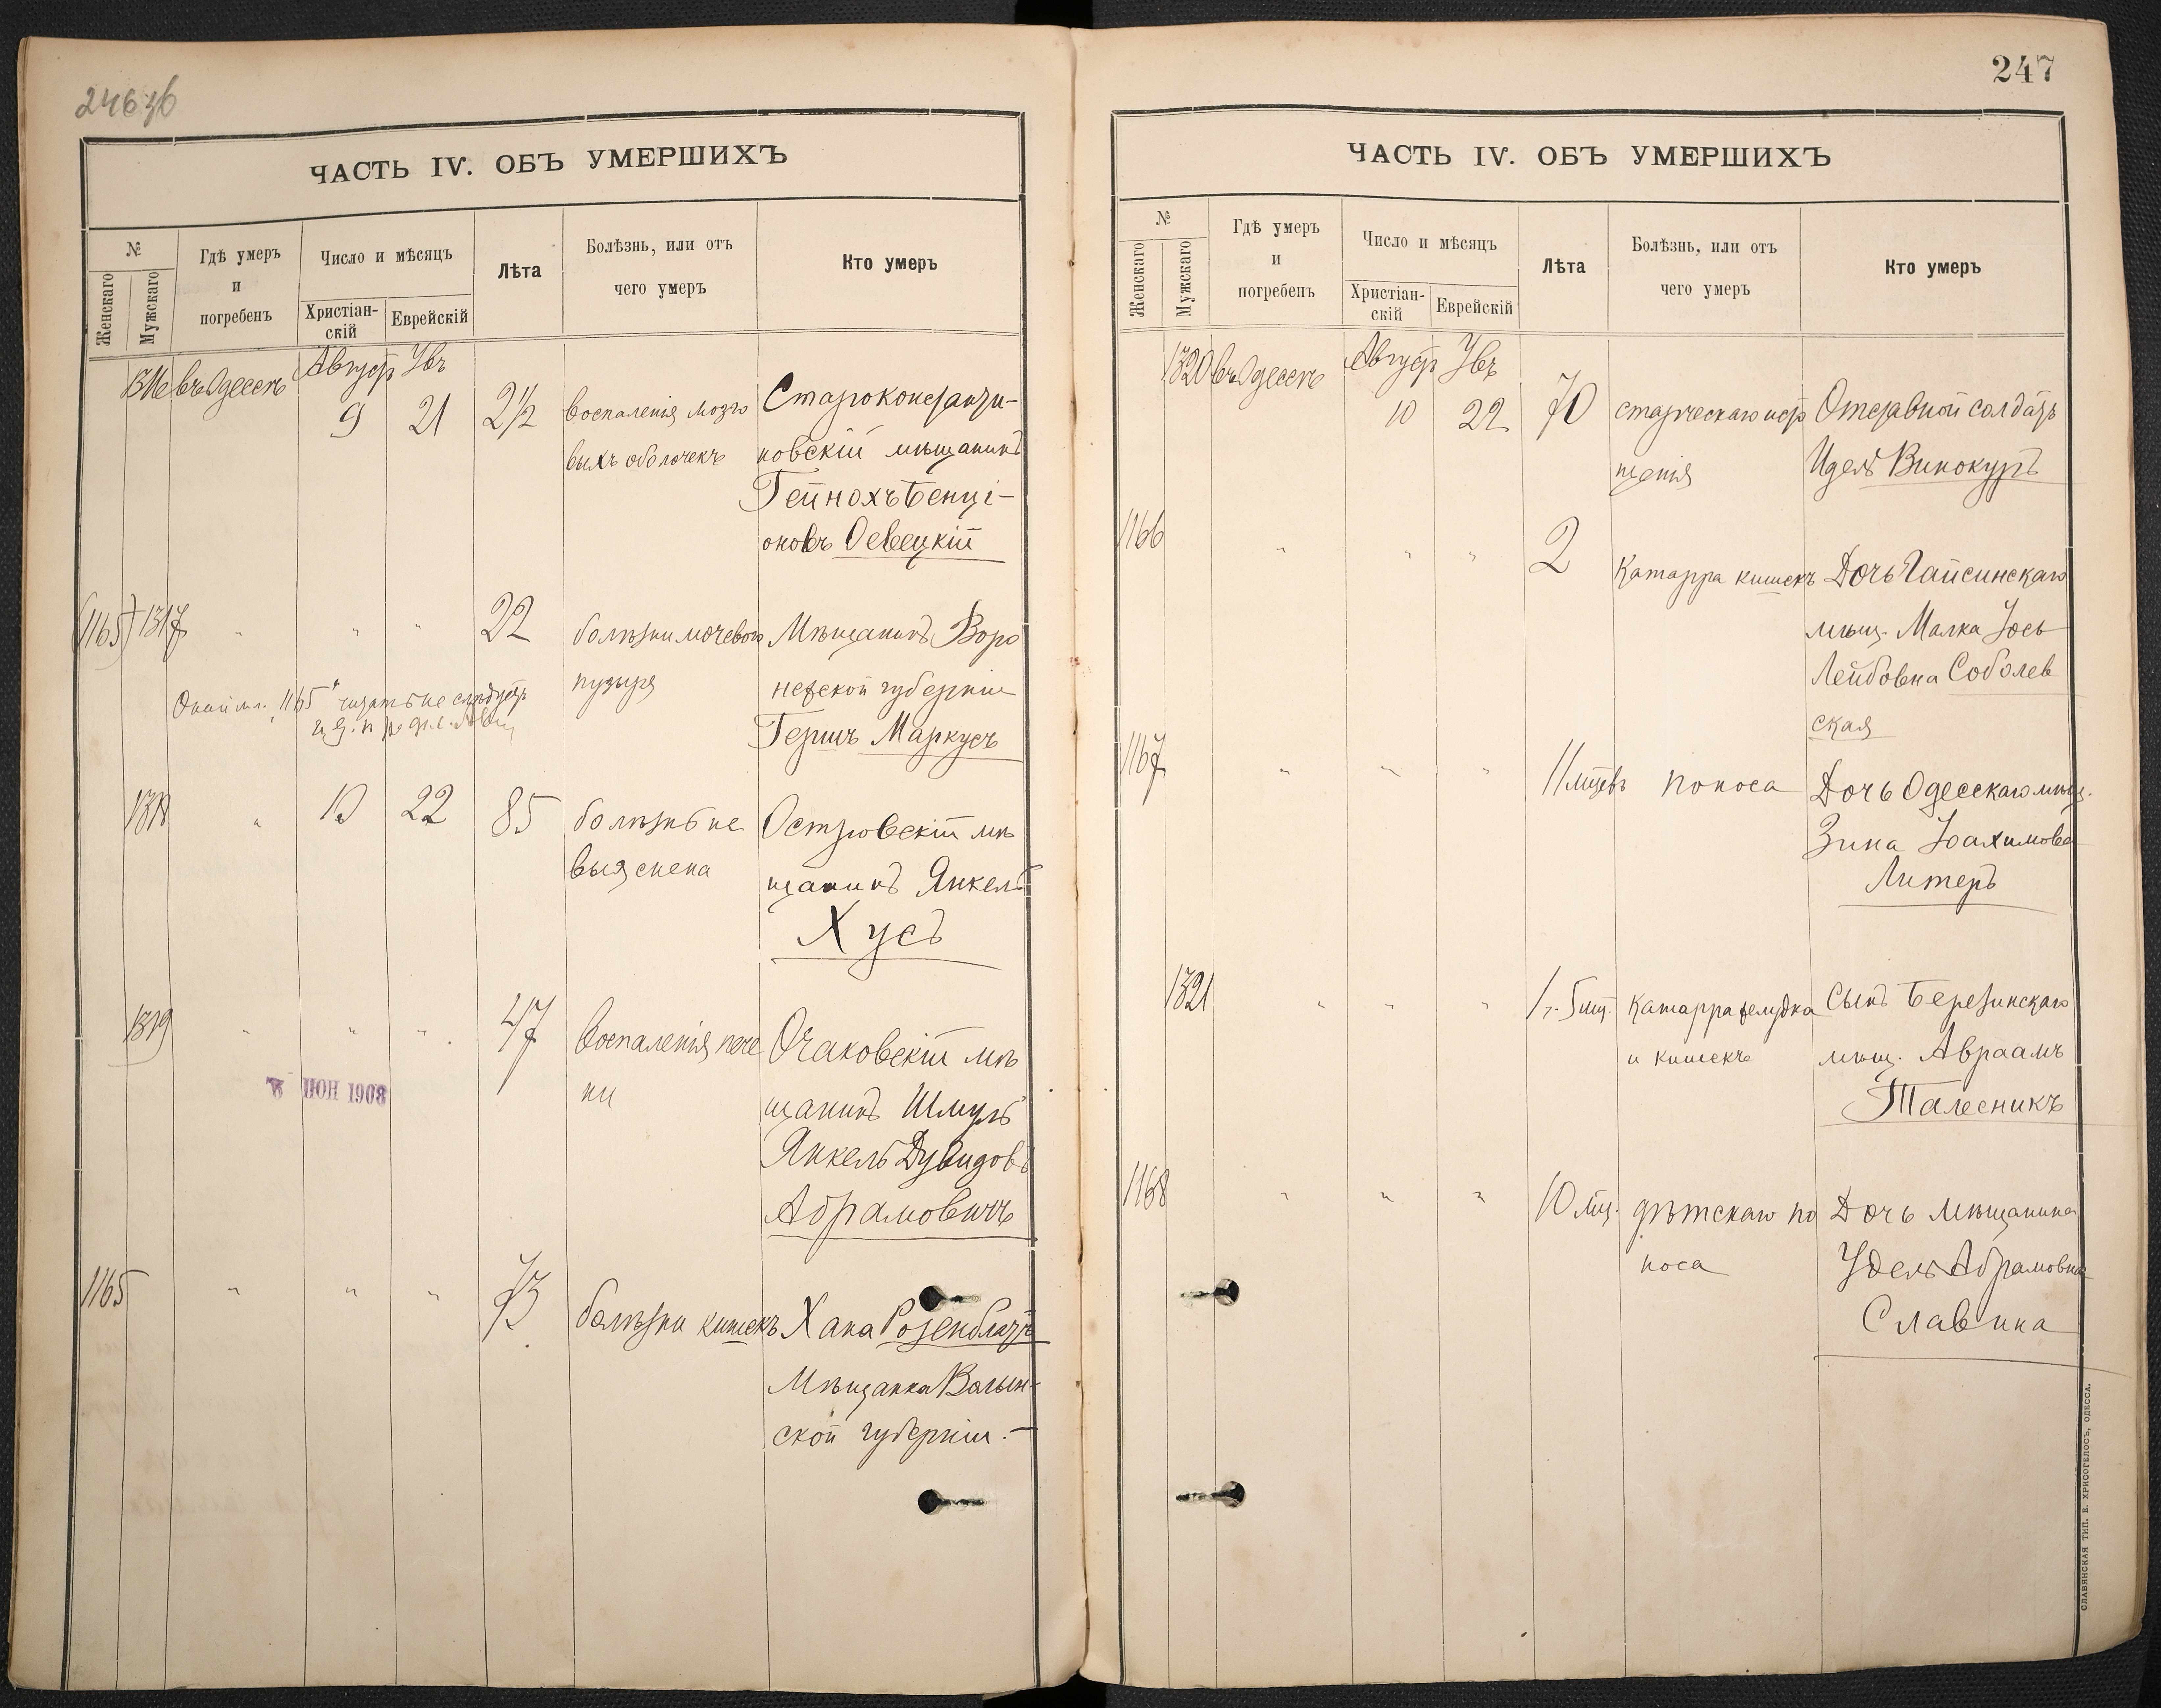 246 об
ЧАСТЬ IV. ОБЪ УМЕРШИХЪ
№
Женскаго
Мужскаго
Гдѣ умеръ
и
погребенъ
Число и мѣсяцъ
Христіан-
скій
Еврейскій
Лѣта
Болѣзнь, или отъ
чего умеръ
Кто умеръ
1316 въ Одессѣ Август Увъ
9 21 2½ воспаленія мозго
выхъ оболочекъ
Староконстанти-
новскій мѣщанинъ
Гейнохъ Бенці-
оновъ Освецкій
(1165) 1317 " " " 22 болѣзни мочевого
пузыря
Мѣщанинъ Воро
нежской губерніи
Гершъ Маркусъ
"1165" читать не слѣдуетъ
1318 " 10 22 85 болѣзнь не
выяснена
Островскій мѣ
щанинъ Янкель
Хусъ
1319 " " " 47 воспаленія пече
ни
Очаковскій мѣ
щанинъ Шмуль
Янкель Дувидовъ
Абрамовичъ
ІЮН 1908
1165 " " " 73 болѣзни кишекъ
Хана Розенблатъ
Мѣщанка Волын-
ской губерніи.-
247
ЧАСТЬ IV. ОБЪ УМЕРШИХЪ
№
Женскаго
Мужскаго
Гдѣ умеръ
и
погребенъ
Число и мѣсяцъ
Христіан-
скій
Еврейскій
Лѣта
Болѣзнь, или отъ
чего умеръ
Кто умеръ
1320 въ Одессѣ Август Увъ
10 22 70 старческаго исто
щенія
Отставной солдатъ
Идель Винокуръ
1166 " " " 2 Катарра кишекъ
Дочь Гайсинскаго
мѣщ. Малка Іось
Лейбовна Соболев
ская
1167 " " " 11 мѣцевъ поноса
Дочь Одесскаго мѣщ.
Зина Іоахимова
Литеръ
1321 " " " 1 г. 5 мц. Катарра желудка
и кишекъ
Сынъ Березинскаго
мѣщ. Авраамъ
Талесникъ
1168 " " " 10 мц. дѣтскаго по
носа
Дочь мѣщанина
Удель Абрамовна
Славина
СЛАВЯНСКАЯ ТИП. Е. ХРИСОГЕЛОСЪ, ОДЕССА.